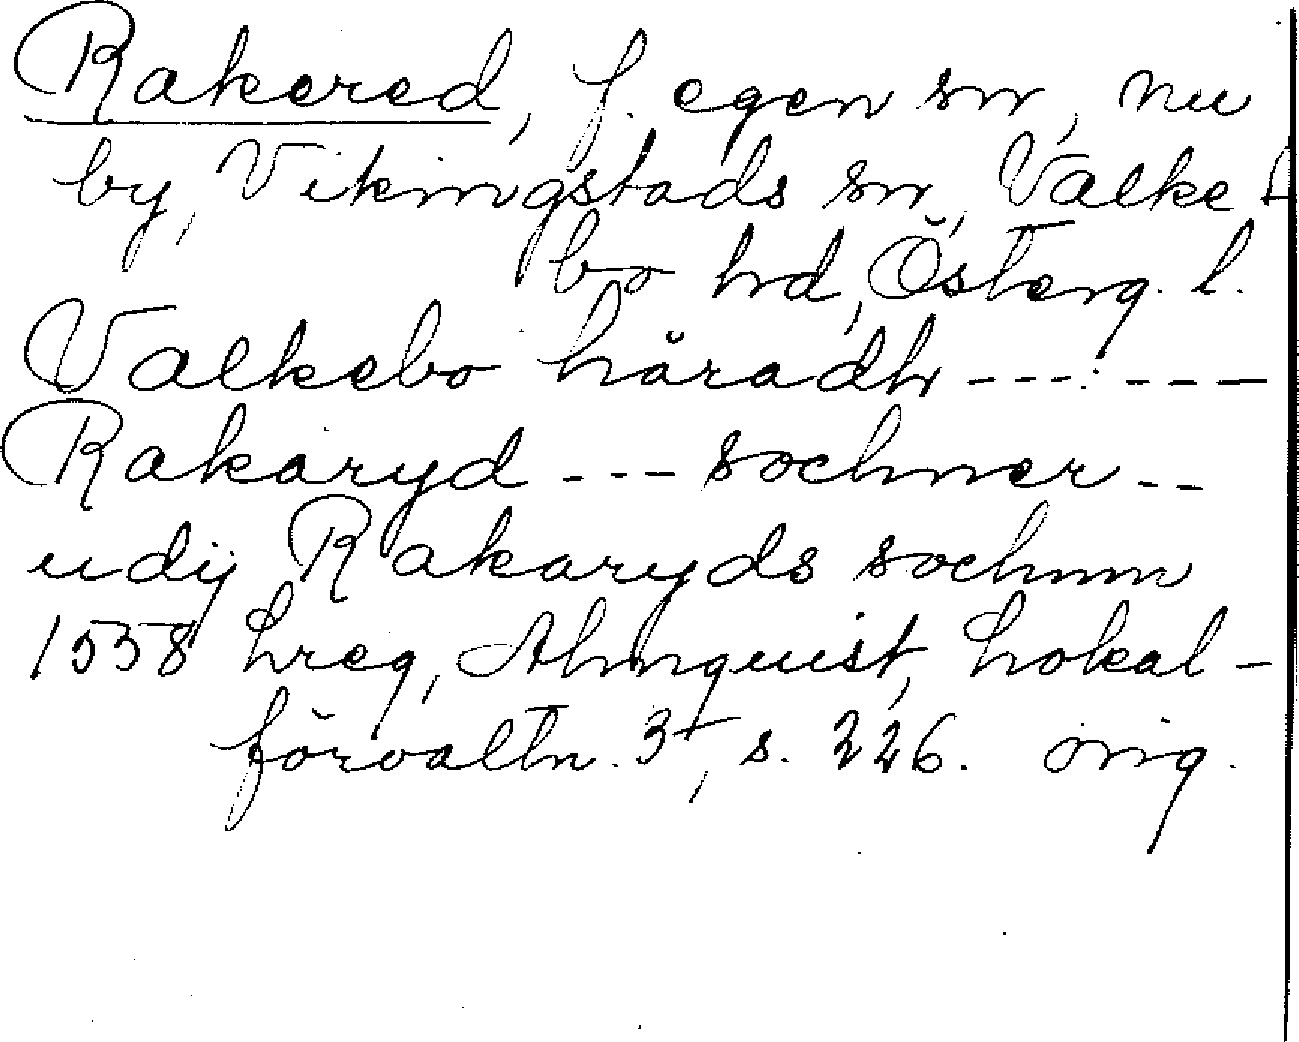 Rakered, f. egen sn, nu
by, Vikingstads sn, Valke-
bo hd, Österg. l.
Valkebo häradh - - - - - - -
Rakaryd - - - sochner - -
udij Rakaryds sochnn
1558 Lreg, Almquist, Lokal-
förvaltn. 3, s. 226. orig.